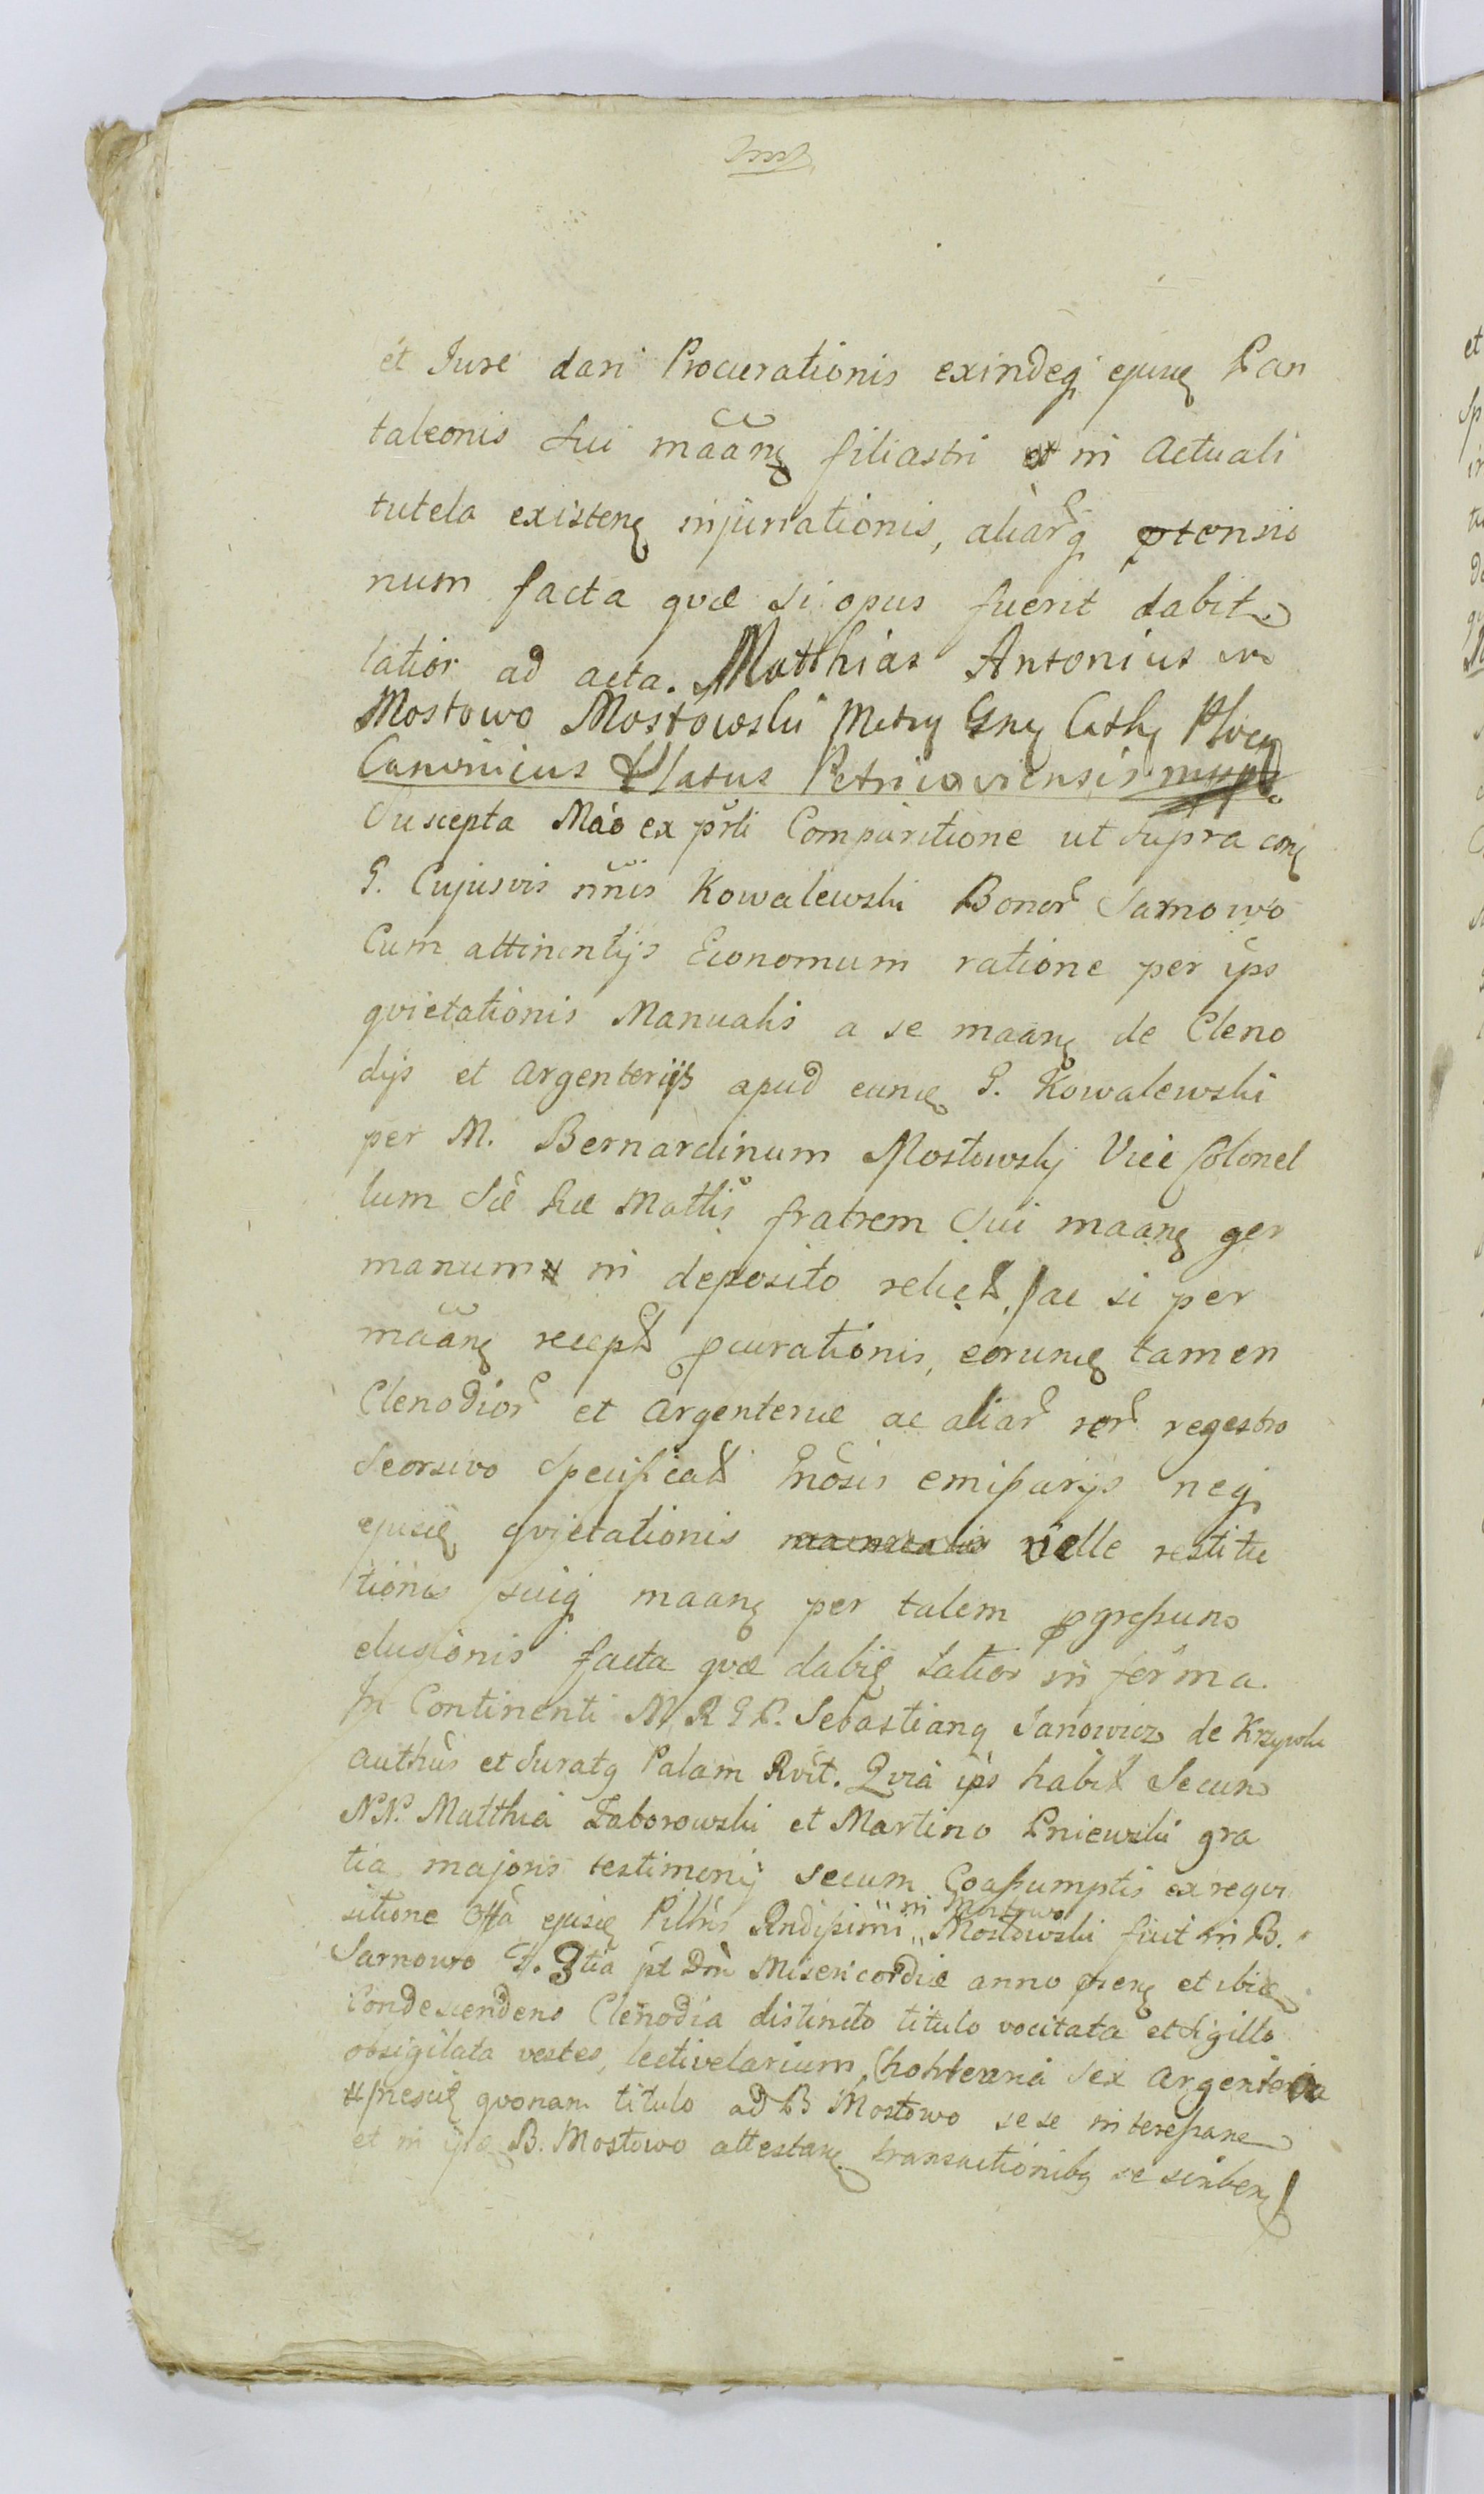 et Jure dari Procurationis exindeq ejusq Pan
taleonis sui mãanq filiastri et in Actuali
tutela existenq injuriationis, aliarq ptensio
num facta qvæ si opus fuerit dabit
latior ad acta. Matthias Antonius in
Mostowo Mostowski Metrq Gnq Cathq Plocq
Canonicus Platus Petricoviensis mpp
Suscepta Mao ex prti Comparitione ut supra conq
G. Cujusvis nñis Kowalewski Bonor Sarnowo
Cum attinentijs Economum ratione per ips
qvietationis Manualis a se maanq de Cleno
dijs et Argenterijs apud eunq G. Kowalewski
per M. Bernardinum Mostowskj Vice Colonel
lum Sæ Ræ Mattis fratrem sui maanq ger
manum in deposito relict, ac si per
mãanq recept pcurationis, eorunq tamen
Clenodior et Argenteriæ ac aliar rer regestro
Seorsivo specificat Gnosis emissarijs neq
ejusq qvjetationis manualis velle restitu
tionis suiq maanq per talem pgressuno
elusionis facta qvæ dabiq latior in forma.
In Continenti M. R. G. P. Sebastianq Janowicz de Krzywki
Authus et Juratq Palam Rvit. Qvia ips habit Secun
N.N. Matthia Zaborowski et Martino Pniewski gra
tia majoris testimonij secum Coassumptis ex reqvi
sitione Offa ejusq Pilltris Rndissimi Mostowski fuit in B.
in Mostowo
Sarnowo F. 3tia pt Dm Misericordiæ anno psenq et ibiq
Condescendens Clenodia distincto titulo vocitata et sigillo
obsigilata vestes, lectivelarium, sex Argenteria
nesciq qvonam titulo ad B Mostowo sese interessane
et in ipq B. Mostowo attestanq transactionibq se scriben